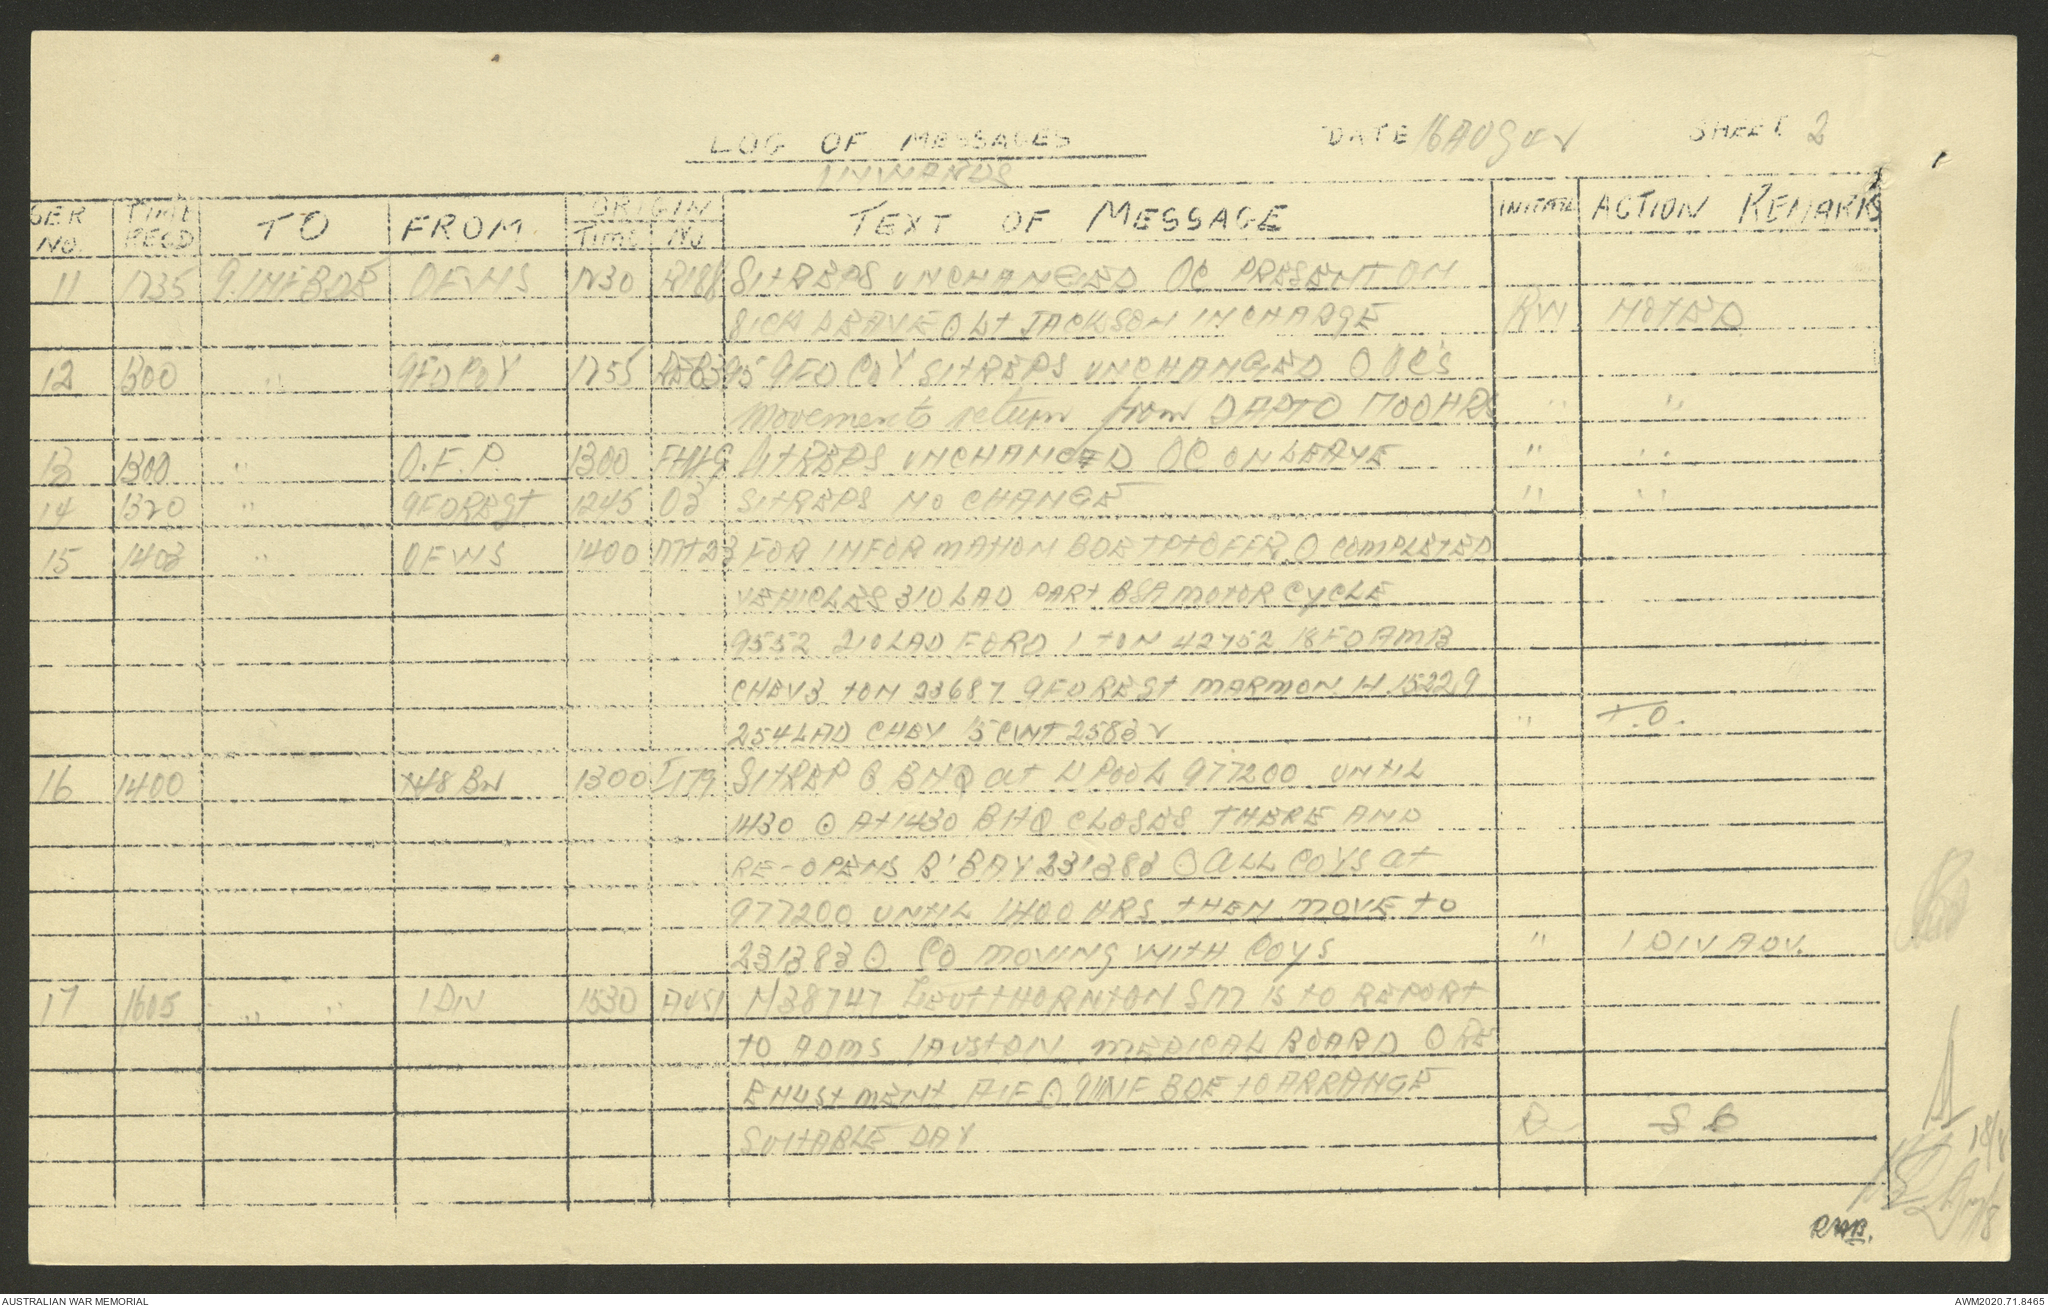 LOG OF MESSAGES DATE 16 AUG 42 SHEET 2
INWARDS
SER NO. TIME RECD TO FROM ORIGIN TIME NO TEXT OF MESSAGE INITIAL ACTION REMARKS
11 1235 9.INFBDE OFWS 1230 R188 SITREPS UNCHANGED OC PRESENT ON
SICK LEAVE O Lt JACKSON IN CHARGE RW NOTED
12 1300 " 9FDCOY 1255 9FD COY SITREPS UNCHANGED O OC'S
Movements return from DAPTO 1700HRS " "
13 1300 " O.F.P. 1300 SITREPS UNCHANGED OC ON LEAVE " "
14 1320 " 9FDREGt 1245 03 SITREPS NO CHANGE " "
15 1403 " OFWS 1400 MT23 FOR INFORMATION BDE TPTOFFR O COMPLETED
VEHICLES 310 LAD PART BSA MOTOR CYCLE
9552 210 LAD FORD 1 TON 42752 18 FD AMB
CHEV 3 TON 23687 9FDREGt MARMON H 15229
254 LAD CHEV 15 CWT 25832 " T.O.
16 1400 48 BN 1300 I179 SITREP O BHQ at L'POOL 977200 UNTIL
1430 O At 1430 BHQ CLOSES THERE AND
RE-OPENS B'BAY 231383 O ALL COYS at
977200 UNTIL 1400 HRS THEN MOVE TO
231383 O CO MOVING WITH COYS " 1 DIV ADV.
17 1605 " " 1 DIV 1530 A451 N38747 LIEUT THORNTON SM IS TO REPORT
TO ADMS 1 AUST DIV MEDICAL BOARD O RE
ENLISTMENT AIF O 9 INF BDE TO ARRANGE
SUITABLE DAY R SC
18/8
RWB.
AUSTRALIAN WAR MEMORIAL AWM2020.71.8465